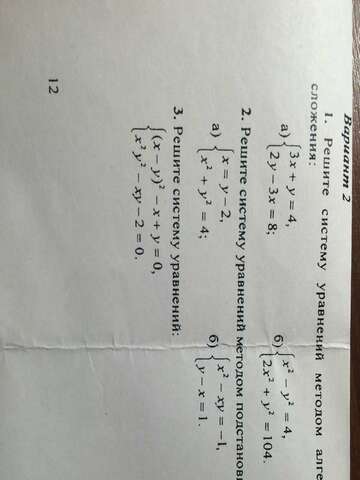 Вариант 2
1. Решите систему уравнений методом алге
сложения:
а) { 3x + y = 4, 2y − 3x = 8; б) { x² − y² = 4, 2x² + y² = 104.
2. Решите систему уравнений методом подстанов
а) { x = y − 2, x² + y² = 4; б) { x² − xy = −1, y − x = 1.
3. Решите систему уравнений:
{ (x − y)² − x + y = 0, x²y² − xy − 2 = 0.
12